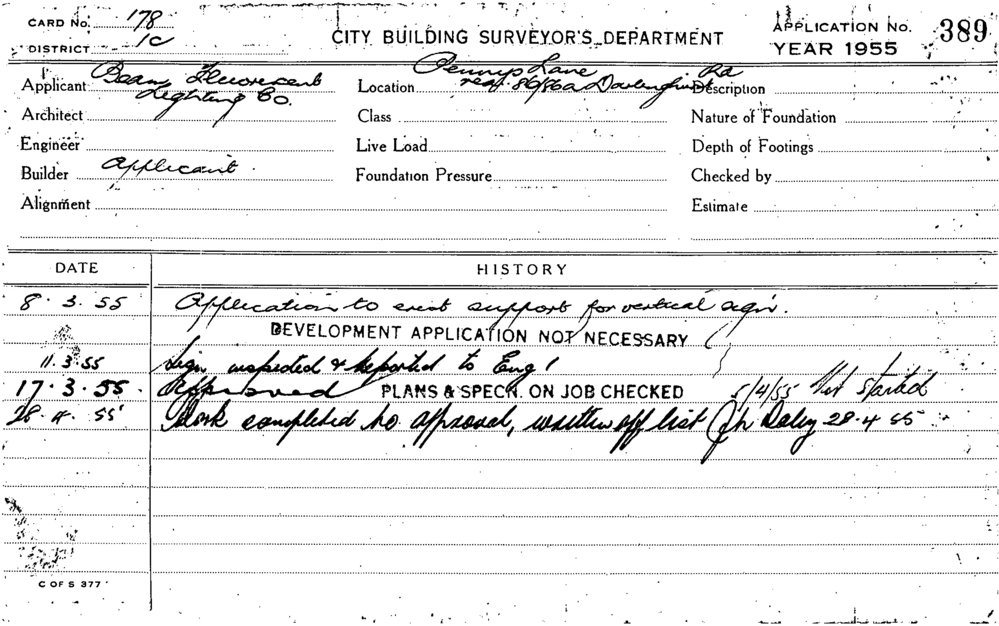 CARD No. 178
DISTRICT 1c
CITY BUILDING SURVEYOR'S DEPARTMENT
APPLICATION No. 389
YEAR 1955
Applicant Beam Fluorescent Lighting Co.
Location Pennys Lane rear 86/86a Darlinghurst Rd
Description
Architect
Class
Nature of Foundation
Engineer
Live Load
Depth of Footings
Builder Applicant.
Foundation Pressure
Checked by
Alignment
Estimate
DATE HISTORY
8. 3. 55 Application to erect support for vertical sign.
DEVELOPMENT APPLICATION NOT NECESSARY
11. 3. 55 Sign inspected & reported to Eng
17. 3. 55. Approved PLANS & SPECN. ON JOB CHECKED 5/4/55 Not started
28. 4. 55 Work completed to approval, written off list Daley 28.4 55
C OF S 377